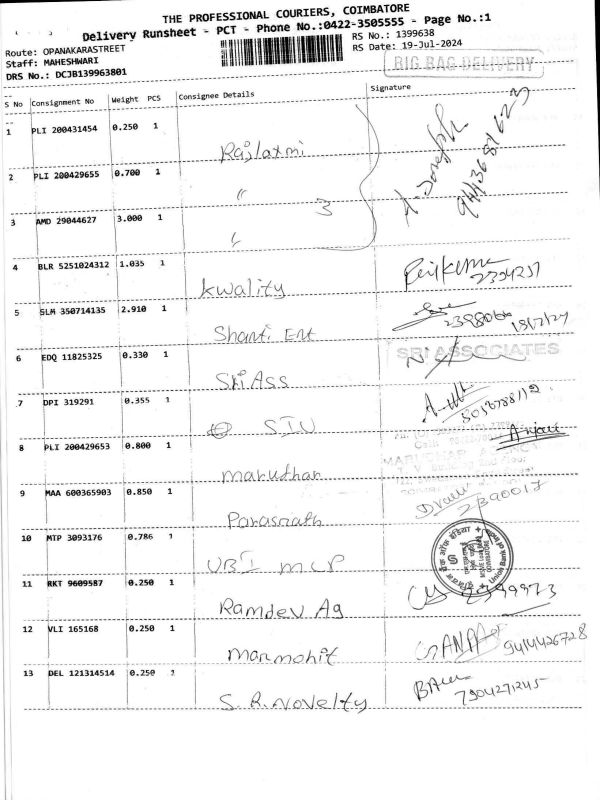 THE PROFESSIONAL COURIERS, COIMBATORE
Delivery Runsheet - PCT - Phone No.:0422-3505555 - Page No.:1
Route: OPANAKARASTREET
RS No.: 1399638
Staff: MAHESHWARI
RS Date: 19-Jul-2024
DRS No.: DCJB139963801
BIG BAG DELIVERY
S No Consignment No Weight PCS Consignee Details Signature
1 PLI 200431454 0.250 1 Rajlaxmi
2 PLI 200429655 0.700 1 "
3
3 AMD 29044627 3.000 1 "
4 BLR 5251024312 1.035 1 kwality
5 SLM 350714135 2.910 1 Shanti Ent
6 EDQ 11825325 0.330 1 Sri Ass
SRI ASSOCIATES
7 DPI 319291 0.355 1 SIU
8 PLI 200429653 0.800 1 marudhar
Anjali
9 MAA 600365903 0.850 1 Parasnath
2390017
10 MTP 3093176 0.786 1 UBI MCP
11 RKT 9609587 0.250 1 Ramdev Ag
2399973
12 VLI 165168 0.250 1 manmohit
9414426728
13 DEL 121314514 0.250 1 S. R. Novelty
7904271245